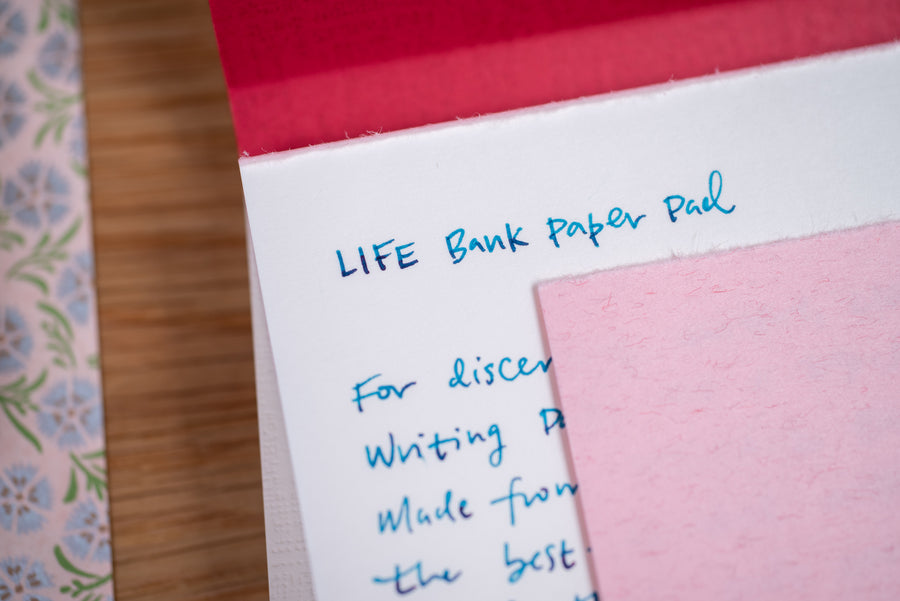 LIFE Bank Paper Pad
For
Writing
Made from
the best